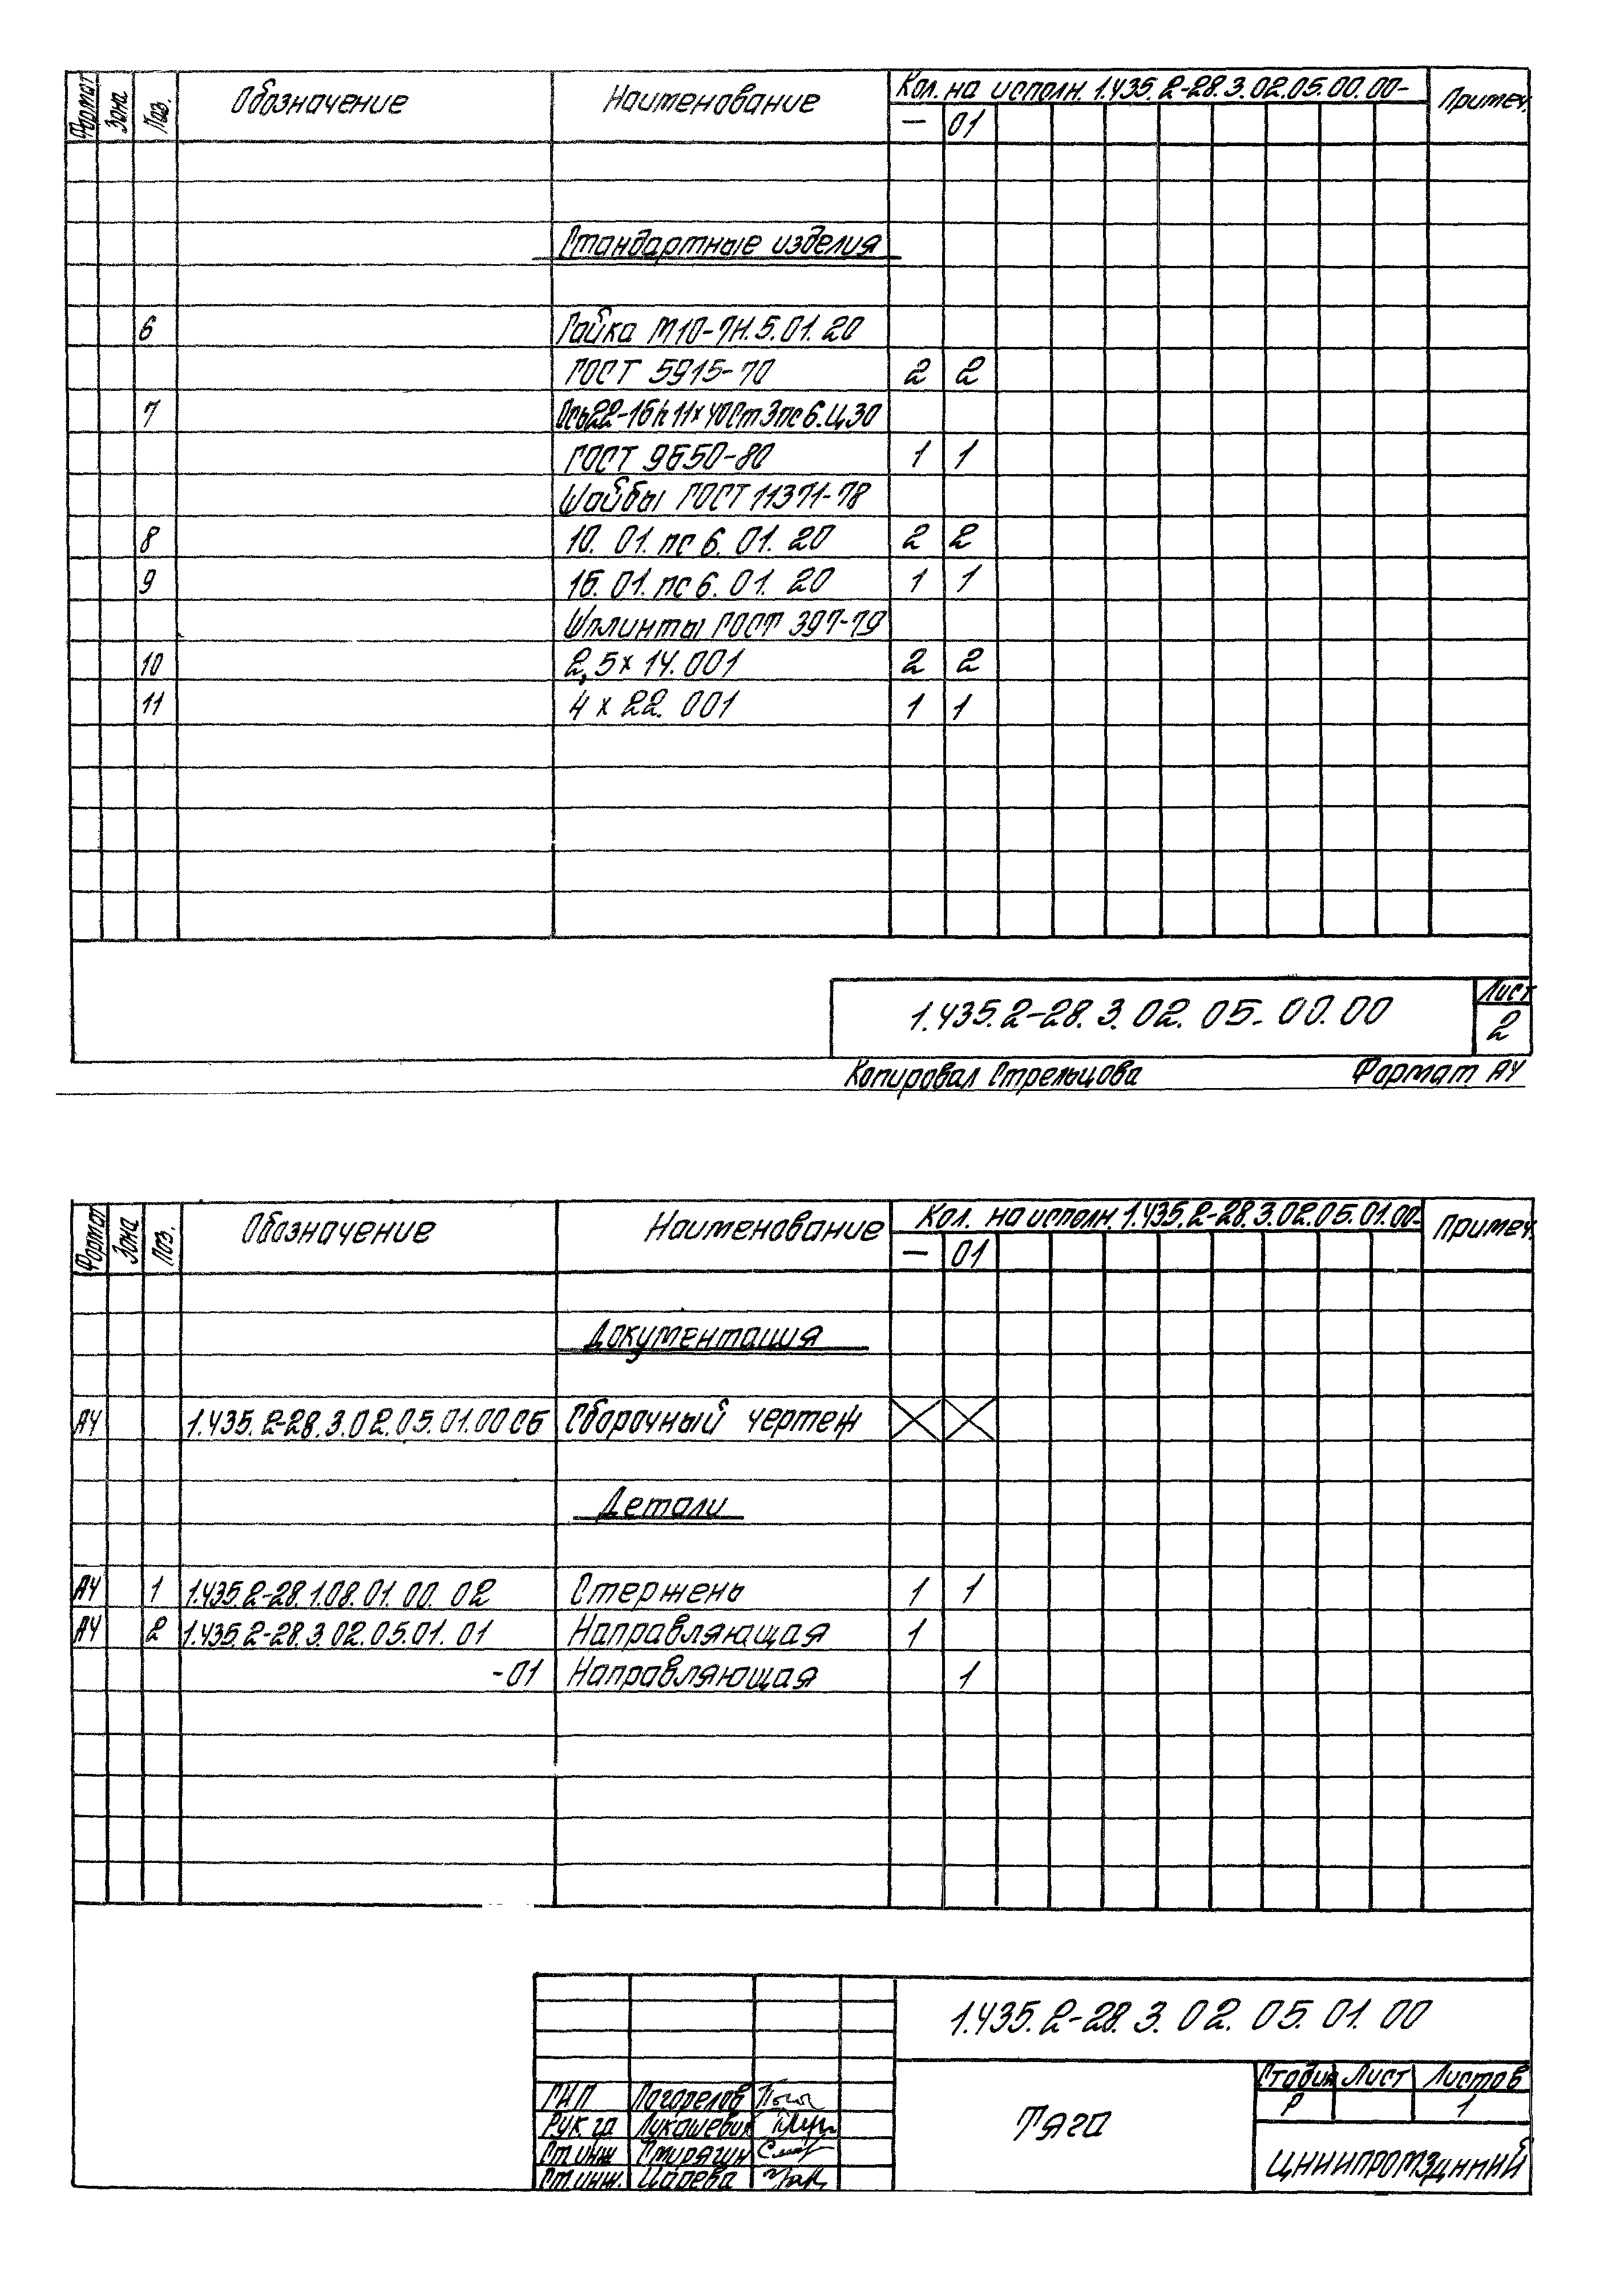 Формат Зона Поз. Обозначение Наименование Кол. на исполн. 1.435.2-28.3.02.05.00.00- Примеч.
— 01
Стандартные изделия
6 Гайка М10-7Н.5.01.20
ГОСТ 5915-70 2 2
7 Ось 22-16h11×40Ст3пс6.Ц30
ГОСТ 9650-80 1 1
Шайбы ГОСТ 11371-78
8 10. 01. пс 6. 01. 20 2 2
9 16. 01. пс 6. 01. 20 1 1
Шплинты ГОСТ 397-79
10 2,5×14.001 2 2
11 4×22.001 1 1
1.435.2-28.3.02.05.00.00 Лист
2
Копировал Стрельцова Формат А4
Формат Зона Поз. Обозначение Наименование Кол. на исполн. 1.435.2-28.3.02.05.01.00- Примеч.
— 01
Документация
А4 1.435.2-28.3.02.05.01.00СБ Сборочный чертеж
Детали
А4 1 1.435.2-28.1.08.01.00.02 Стержень 1 1
А4 2 1.435.2-28.3.02.05.01.01 Направляющая 1
-01 Направляющая 1
1.435.2-28.3.02.05.01.00
Тяга
Стадия Лист Листов
Р 1
ЦНИИПРОМЗДАНИЙ
ГИП Погорелов
Рук гр Лукашевич
Ст инж
Ст.инж. Царева